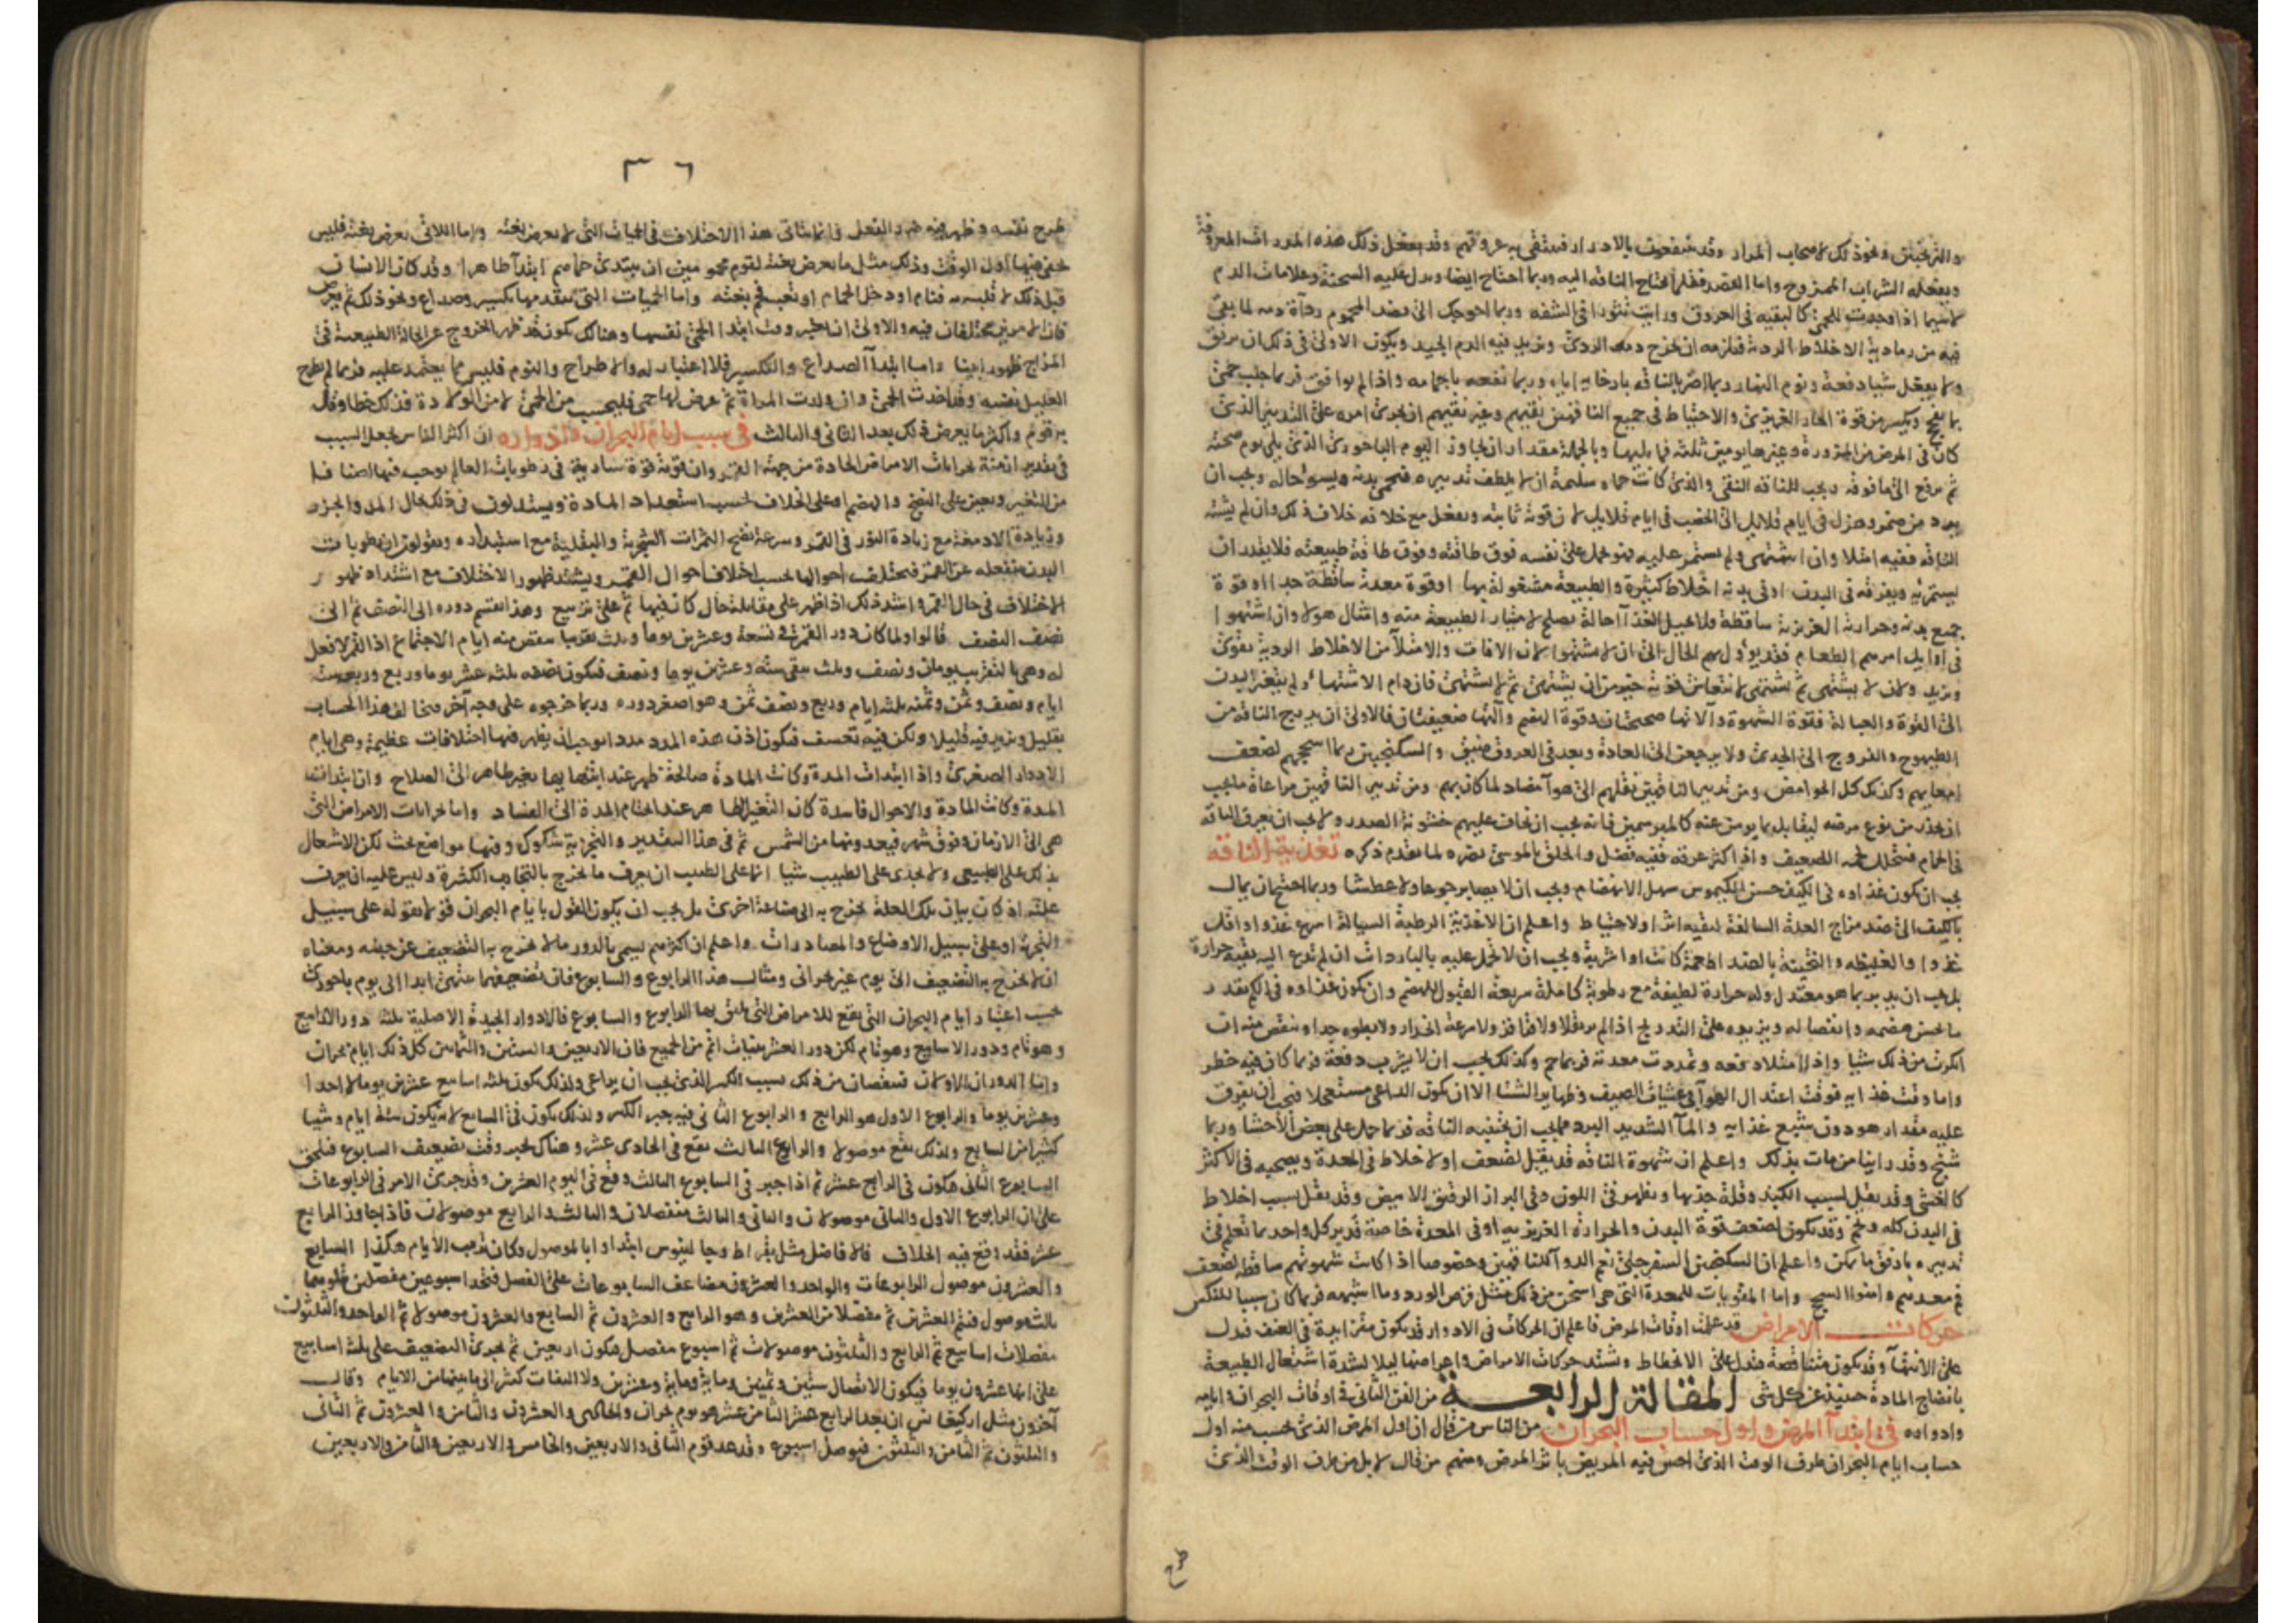 والترنجبين ونحو ذلك لاصحاب المرار وقد ينفعون بالادرار فينقى به عروقهم وقد يفعل ذلك هذه المدرات المعروفة
ويفعله الشراب الممزوج واما الفصد فقلما يحتاج الناقه اليه وربما احتاج ايضا ويدل عليه السحنة وعلامات الدم
لاسيما اذا وجدت الحمى كالبقية في العروق ورايت بثورا في الشفه وربما احوجك الى فصد المحموم رداة دمه لما بقى
فيه من رمادية الاخلاط الردية فيلزمه ان يخرج دمه الردى ويزيد فيه الدم الجيد ويكون الاولى في ذلك ان يرفق
ولا يفعل شيا دفعة ونوم النهار ربما اضر بالناقه بارخايه اياه وربما نفعه باجمامه واذا لم يوافق فربما جلب حمى
بما يفج ويكسر من قوة الحار الغريزى والاحتياط في جميع الناقهين نقيهم وغير نقيهم ان يجرى امره على التدبير الذى
كان في المرض من المزورة وغيرها يومين ثلثه فما يليها وبالجملة مقدار ان يجاوز اليوم الباحورى الذى يلى يوم صحته
ثم يرفع الى ما فوقه ويجب للناقه النقى والذى كانت حماه سليمة ان لا يلطف تدبيره فيحمى بدنه ويسو حاله ويجب ان
يرد من ضمر وهزل في ايام قلايل الى الخصب في ايام قلايل لان قوته ثابته ويفعل مع خلافه خلاف ذلك وان لم يشته
الناقه ففيه امتلا وان اشتهى ولم يستمر عليه فهو يحمل على نفسه فوق طاقته وفوق طاقة طبيعته فلا يقدر ان
يستمريه ويفرقه في البدن او في بدنه اخلاط كثيرة والطبيعة مشغولة بها او قوة معدته ساقطة جدا او قوة
جميع بدنه وحرارته الغريزية ساقطة ولا يحيل الغذا احالة يصلح لامتيار الطبيعة منه وامثال هولا وان اشتهوا
في اوايل امرهم الطعام فقد يؤول بهم الحال الى ان لا يشتهوا لان الافات والامتلا من الاخلاط الردية يقوى
ويزيد ولان لا يشتهى ثم يشتهى لانتعاش قوته خير من ان يشتهى ثم لا يشتهى فان دام الاشتهاء ولم يتغير البدن
الى القوة والعبالة فقوة الشهوة والاتها صحيحتان وقوة الهضم والتها ضعيفتان فالاولى ان يدرج الناقه من
الطيهوج والفروج الى الجدى ولا يرجعن الى العادة وبعد في العروق ضيق والسكنجبين ربما اسحجهم لضعف
امعايهم وكذلك كل الحوامض ومن تدبير الناقهين نقلهم الى هوا مضاد لما كان بهم ومن تدبير الناقهين مراعاة ما يجب
ان يحذر من نوع مرضه ليقابل بما يومن عنه كالمبرسمين فانه يجب ان يخاف عليهم خشونة الصدر ولا يجب ان يعرق الناقه
في الحمام فيتحلل لحمه الضعيف واذا كثر عرقه ففيه فضل والحلق بالموسى يضره لما تقدم ذكره تغذية الناقه
يجب ان يكون غذاوه في الكيف حسن الكيموس سهل الانهضام ويجب ان لا يصابر جوعا ولا عطشا وربما احتيج ان يمال
بالكيف الى ضد مزاج العلة السالفة لبقيه اثر او لاحتياط واعلم ان الاغذية الرطبة السيالة اسرع غذوا واقل
غذوا والغليظه والثخينة بالضد اطعمة كانت او اشربة ويجب ان لا يحمل عليه بالباردات ان لم تدع اليه بقية حرارة
بل يجب ان يدبر بما هو معتدل وله حرارة لطيفة مع رطوبة كاملة سريعة القبول للهضم وان يكون غذاوه في الكم بقدر
ما يحسن هضمه وانفصاله ويزيده على التدريج اذا لم ير ثقلا ولا قراقر ولا سرعة انحدار ولا بطوه جدا وينقص منه ان
انكرت من ذلك شيا واذا امتلا دفعه وتمددت معدته فربما حم وكذلك يجب ان لا يشرب دفعة فربما كان فيه خطر
واما وقت غذايه فوقت اعتدال الهوا في عشيات الصيف وظهاير الشتا الا ان يكون الداعى مستعجلا فيجب ان يفرق
عليه مقدار هو دون شبع غذايه والما الشديد البرد مما يجب ان يجتنبه الناقه فربما حمل على بعض الاحشا وربما
شنج وقد راينا من مات بذلك واعلم ان شهوة الناقه قد يقل لضعف او لاخلاط في المعدة ويصحبه في الاكثر
كالغشى وقد يقل لسبب الكبد وقلة جذبها ويظهر في اللون وفي البراز الرقيق الابيض وقد يقل لسبب اخلاط
في البدن كله وتخم وقد يكون لضعف قوة البدن والحرارة الغريزيه او في المعدة خاصة فدبر كل واحد بما تعلم في
تدبيره بارفق ما يمكن واعلم ان السكنجبين السفرجلى نعم الدوا للناقهين وخصوصا اذا كانت شهوتهم ساقطه لضعف
في معدهم وامنوا السحج واما المقويات للمعدة التى هى اسخن من ذلك مثل قرص الورد وما اشبهه فربما كان سببا للنكس
حركات الامراض قد علمت اوقات المرض فاعلم ان الحركات في الادوار قد يكون متزايدة في العنف فيدل
على الانتها وقد يكون متناقصة فيدل على الانحطاط ويشتد حركات الامراض واعراضها ليلا لشدة اشتغال الطبيعة
بانضاج المادة حينئذ عن كل شى المقالة الرابعة من الفن الثانى في اوقات البحران وايامه
وادواره في ابتدا المرض واول حساب البحران من الناس من قال ان اول المرض الذى يحسب منه اول
حساب ايام البحران طرف الوقت الذى احس فيه المريض باثر المرض ومنهم من قال لا بل من طرف الوقت الذى
٣٦
طرح نفسه وظهر فيه ضرر الفعل فانما يتاتى هذا الاختلاف في الحميات التى لا يعرض بغتة واما اللاتى يعرض بغتة فليس
يخفى فيها اول الوقت وذلك مثل ما يعرض بغتة لقوم محمومين ان يبتدى حماهم ابتدا ظاهرا وقد كان الانسان
قبل ذلك لا قلبه به فنام او دخل الحمام او تعب فحم بغتة واما الحميات التى يتقدمها تكسير وصداع ونحو ذلك ثم يعرض
فان الامرين مختلفان فيه والاولى ان يعتبر وقت ابتدا الحمى نفسها وهنالك يكون قد ظهر الخروج عن الحالة الطبيعية في
المزاج ظهورا بينا واما ابتدا الصداع والتكسير فلا اعتبار له والاطراح والنوم فليس مما يعتمد عليه فربما لم يطرح
العليل نفسه وقد اخذت الحمى وان ولدت المراة ثم عرض لها حمى فليحسب من الحمى لا من الولادة فذلك خطا وقال
به قوم واكثر ما يعرض ذلك بعد الثانى والثالث في سبب ايام البحران وادواره ان اكثر الناس يجعل السبب
في تقدير ازمنة بحرانات الامراض الحادة من جهة القمر وان قوته قوة سارية في رطوبات العالم يوجب فيها اصنافا
من التغير ويعين على النضج والهضم او على الخلاف بحسب استعداد المادة ويستدلون في ذلك بحال المد والجزر
وزيادة الادمغة مع زيادة النور في القمر وسرعة نضج الثمرات الشجرية والبقلية مع استبداره ويقولون ان رطوبات
البدن منفعله عن القمر فيختلف احوالها بحسب اختلاف احوال القمر ويشتد ظهور الاختلاف مع اشتداد ظهور
الاختلاف في حال القمر واشد ذلك اذا ظهر على مقابلة حال كان فيها ثم على تربيع وهذا يقسم دوره الى النصف ثم الى
نصف النصف قالوا ولما كان دور القمر في تسعة وعشرين يوما وثلث تقريبا ينقص منه ايام الاجتماع اذ القمر لا فعل
له وهى بالتقريب يومان ونصف وثلث بقى ستة وعشرين يوما ونصف فيكون نصفه ثلثه عشر يوما وربع وربعه ستة
ايام ونصف وثمن وثمنه ثلثه ايام وربع ونصف ثمن وهو اصغر دوره وربما خرجوه على وجه آخر يخالف هذا الحساب
بقليل ويزيد فيه قليلا ولكن فيه تعسف فيكون اذن هذه المدد مددا يوجب ان يظهر فيها اختلافات عظيمة وهى ايام
الادوار الصغرى واذا ابتدات المدة وكانت المادة صالحة ظهر عند انتهايها تغير ظاهر الى الصلاح وان ابتدات
المدة وكانت المادة والاحوال فاسدة كان التغير الظاهر عند انختام المدة الى الفساد واما بحرانات الامراض التى
هى الى الازمان وفوق شهر فيعدونها من الشمس ثم في هذا التقدير والتجزية شكوك وفيها مواضع بحث لكن الاشتغال
بذلك على الطبيعى ولا يجدى على الطبيب شيا انما على الطبيب ان يعرف ما يخرج بالتجارب الكثيرة وليس عليه ان يعرف
علته اذ كان بيان تلك العلة يخرج به الى صناعة اخرى بل يجب ان يكون القول بايام البحران قولا يقوله على سبيل
التجربة او على سبيل الاوضاع والمصادرات واعلم ان اكثرهم يسمى بالدور ما لا يخرج به التضعيف عن جنسه ومعناه
انه لا يخرج به التضعيف الى يوم غير بحرانى ومثال هذا الرابوع والسابوع فان تضعيفهما ينتهى ابدا الى يوم باحورى
بحسب اعتبار ايام البحران التى يقع للامراض التى يليق بها الرابوع والسابوع فالادوار الجيدة الاصلية ثلثة دور الارابيع
وهو تام ودور الاسابيع وهو تام لكن دور العشرينيات اتم من الجميع فان الاربعين والستين والثمانين كل ذلك ايام بحران
واما الدوران الاولان فينقصان من ذلك بسبب الكسر الذى يجب ان يراعى ولذلك يكون ثلثة اسابيع عشرين يوما لا احدا
وعشرين يوما والرابوع الاول هو الرابع والرابوع الثانى فيه جبر الكسر ولذلك يكون في السابع لانه يكون ستة ايام وشيا
كثيرا من السابع ولذلك يقع موصولا والرابوع الثالث يقع في الحادى عشر وهناك يجبر وقت تضعيف السابوع فيلحق
السابوع الثانى فيكون في الرابع عشر ثم اذا جبر في السابوع الثالث وقع في اليوم العشرين وقد جرى الامر في الرابوعات
على ان الرابوع الاول والثانى موصولان والثانى والثالث منفصلان والثالث والرابع موصولان فاذا جاوز الرابع
عشر فقد وقع فيه الخلاف فالافاضل مثل بقراط وجالينوس ابتداوا بالموصول وكان ترتيب الايام هكذا السابع
والعشرون موصول الرابوعات والواحد والعشرون مضاعف السابوعات على الفصل فيتخذ اسبوعين مفصلين يتلوهما
ثالث موصول فيتم العشرين ثم مفصلات العشرين وهو الرابع والعشرون ثم السابع والعشرون موصولا ثم الواحد والثلثون
مفصلات اسابيع ثم الرابع والثلثون موصولات ثم اسبوع مفصل فيكون اربعين ثم يجرى التضعيف على ثلث اسابيع
على انها عشرون يوما فيكون الاتصال ستين وثمنين وماية وماية وعشرين ولا التفات كثير الى ما بينها من الايام وقال
آخرون مثل اركيغانس ان بعد الرابع عشر الثامن عشر هو يوم بحران والحادى والعشرون والثامن والعشرون ثم الثانى
والثلثون ثم الثامن والثلثون فيوصل اسبوع وقد عد قوم الثانى والاربعين والخامس والاربعين والثامن والاربعين